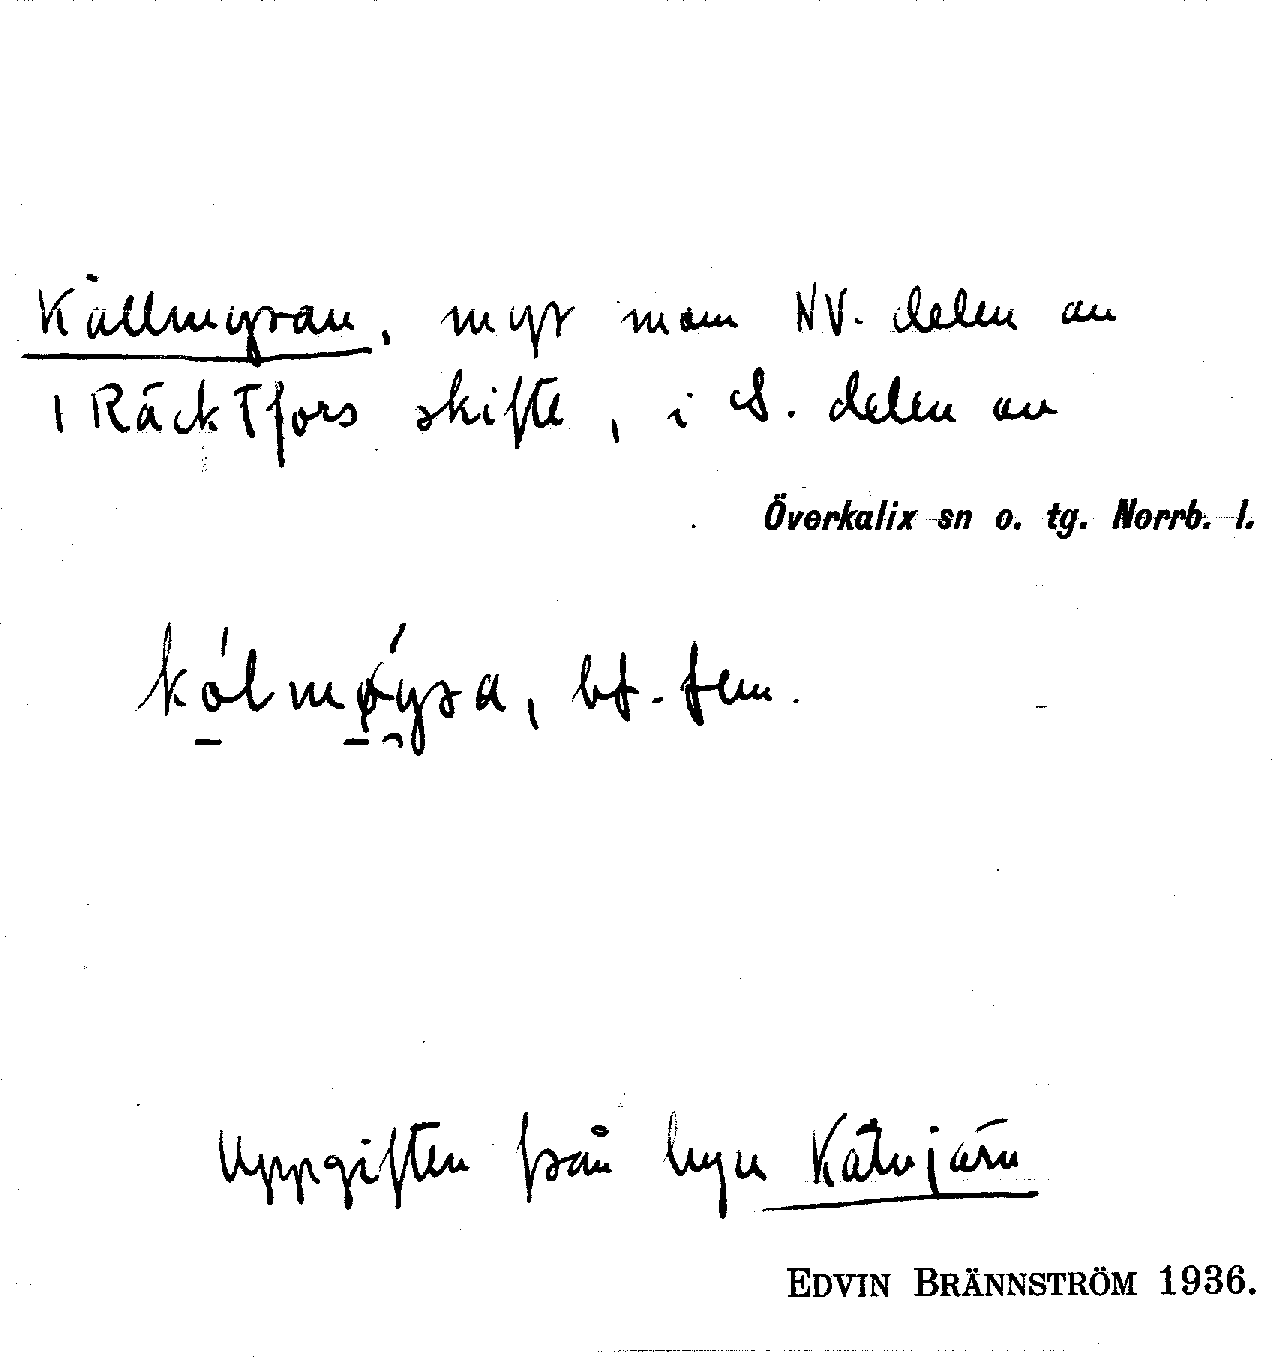 Källmyran, myr inom NV. delen av
1 Räcktfors skifte, i S. delen av
Överkalix sn o. tg. Norrb. l.
bf. fem.
Uppgiften från byn Kätvjärn
EDVIN BRÄNNSTRÖM 1936.